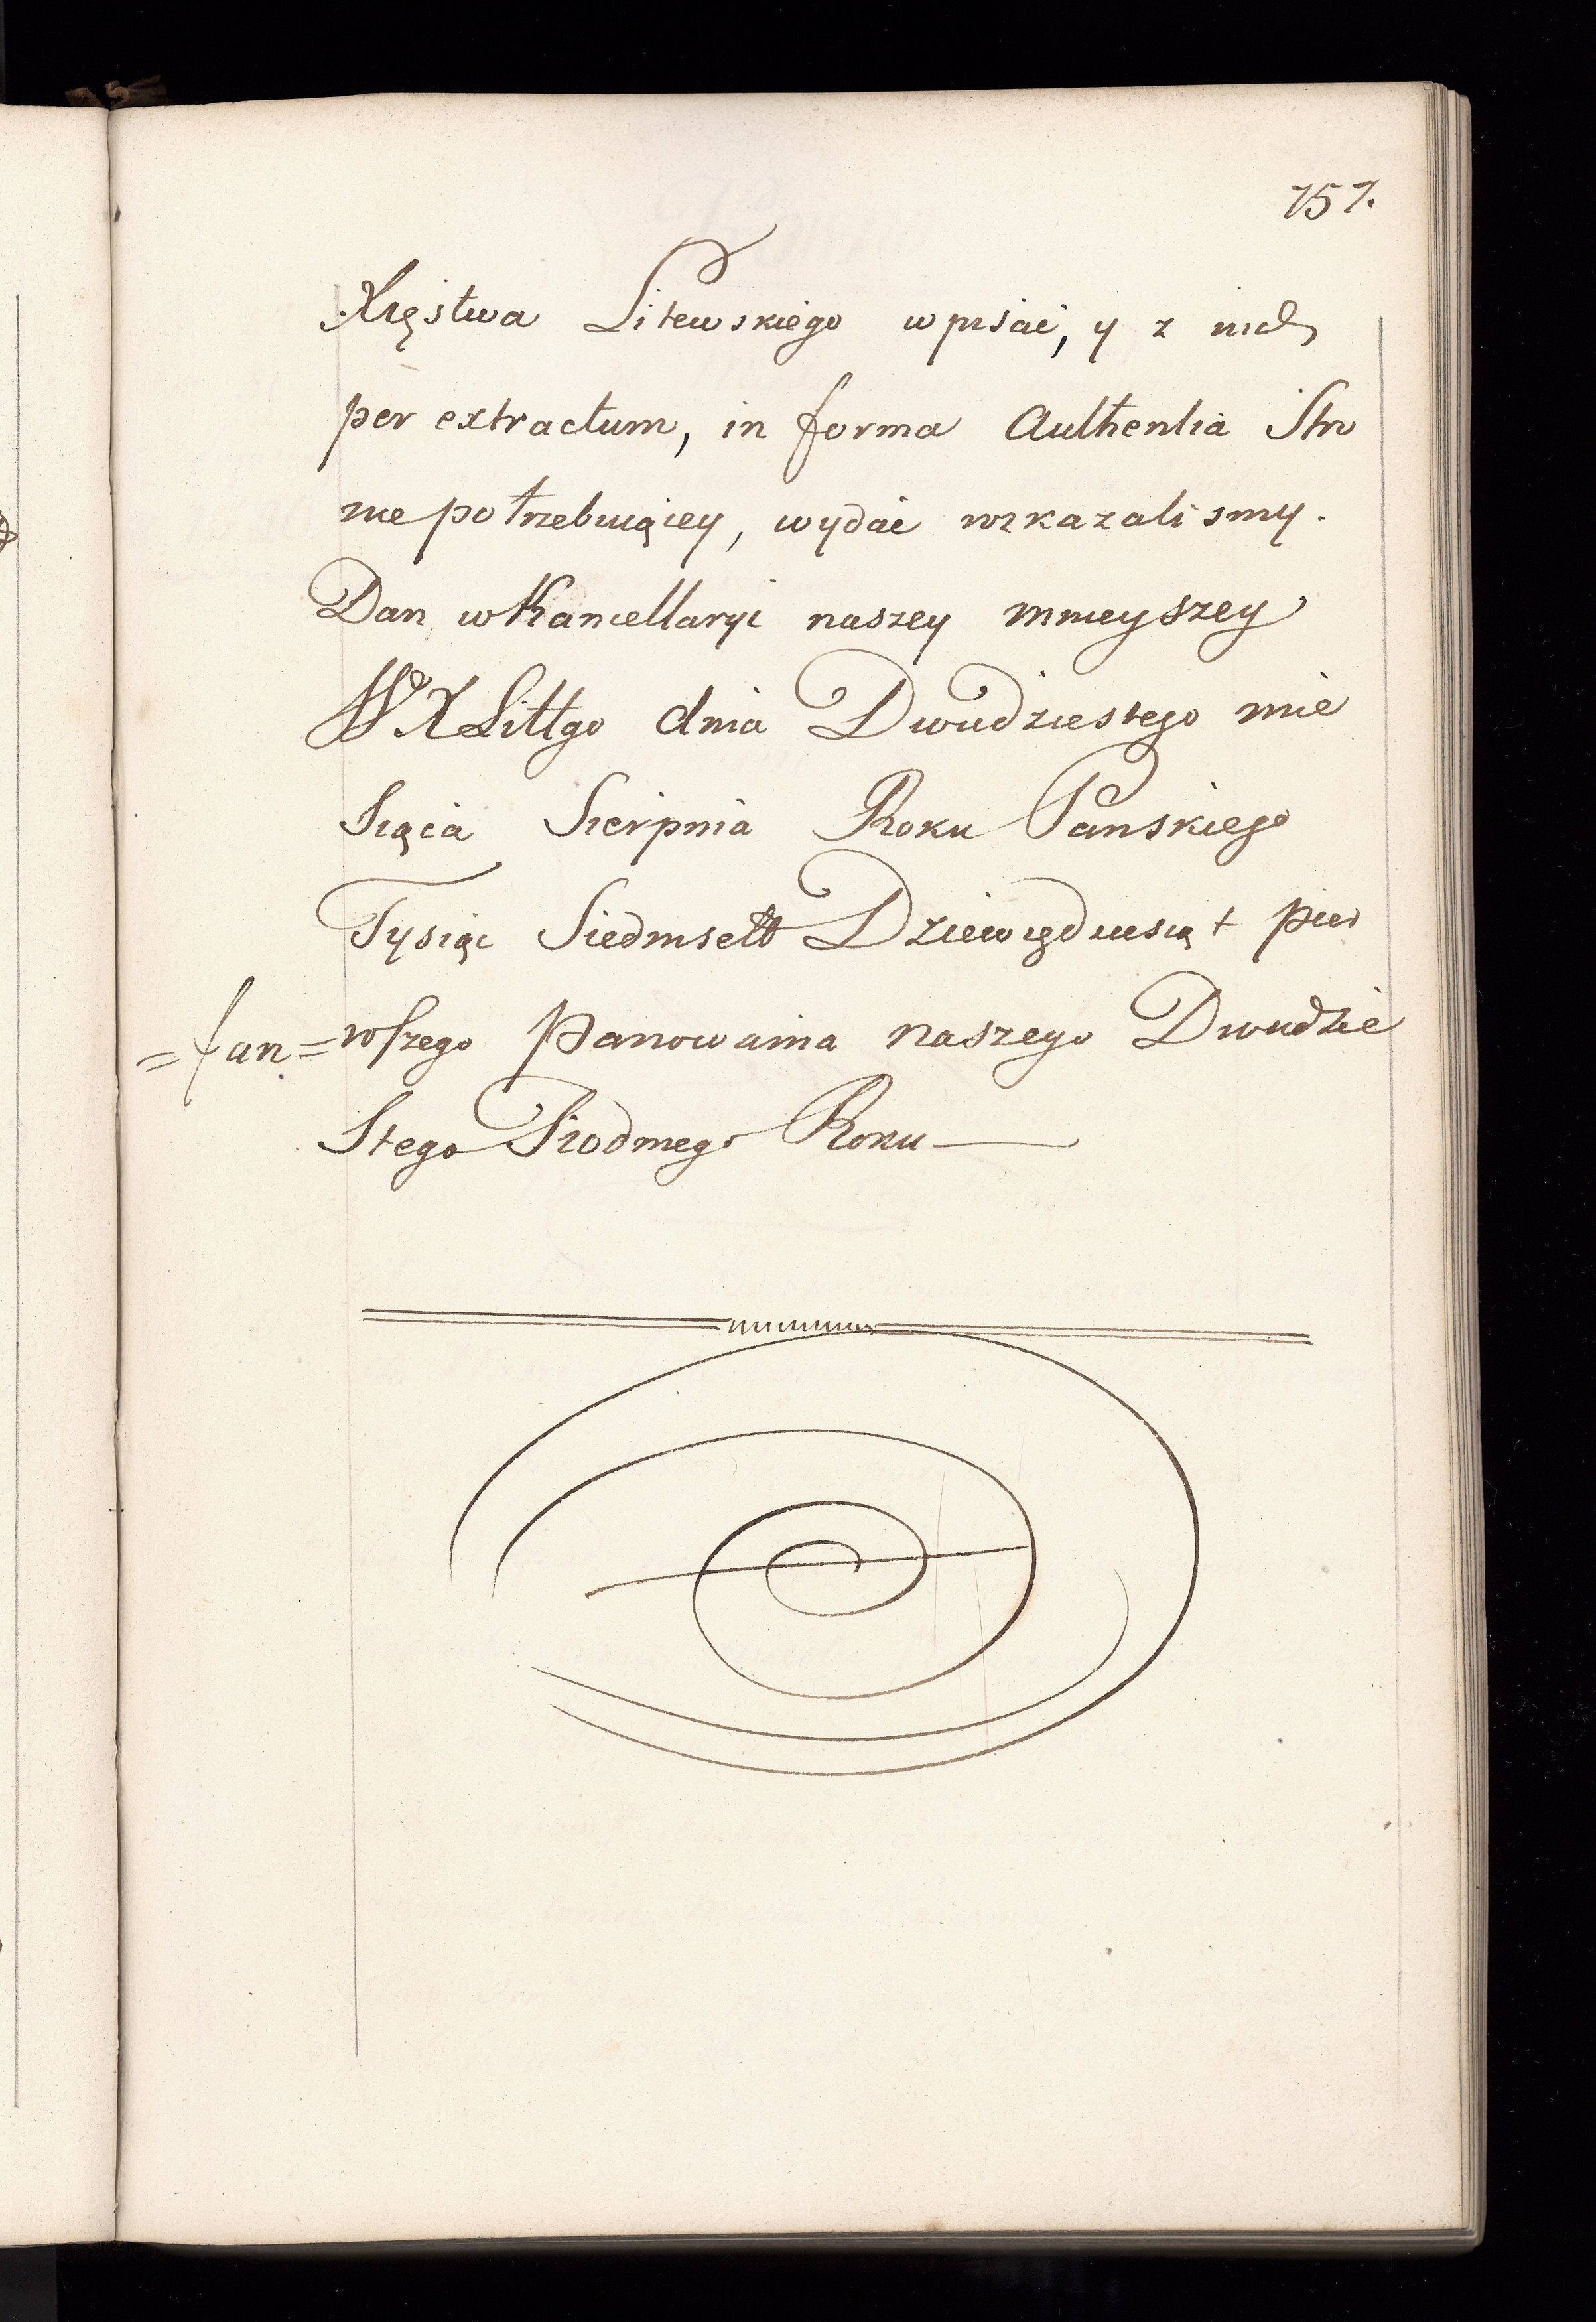 757.
Xięstwa Litewskiego wpisać, y z nich
per extractum, in forma Authentia Stro
nie potrzebuiącey, wydać rozkazalismy.
Dan w Kancellaryi naszey mnieyszey
W X Littgo dnia Dwudziestego mie
Siąca Sierpnia Roku Panskiego
Tysiąc Siedmsett Dziewięдziesiąt pier
wszego Panowania naszego Dwudzie
Stego Siodmego Roku